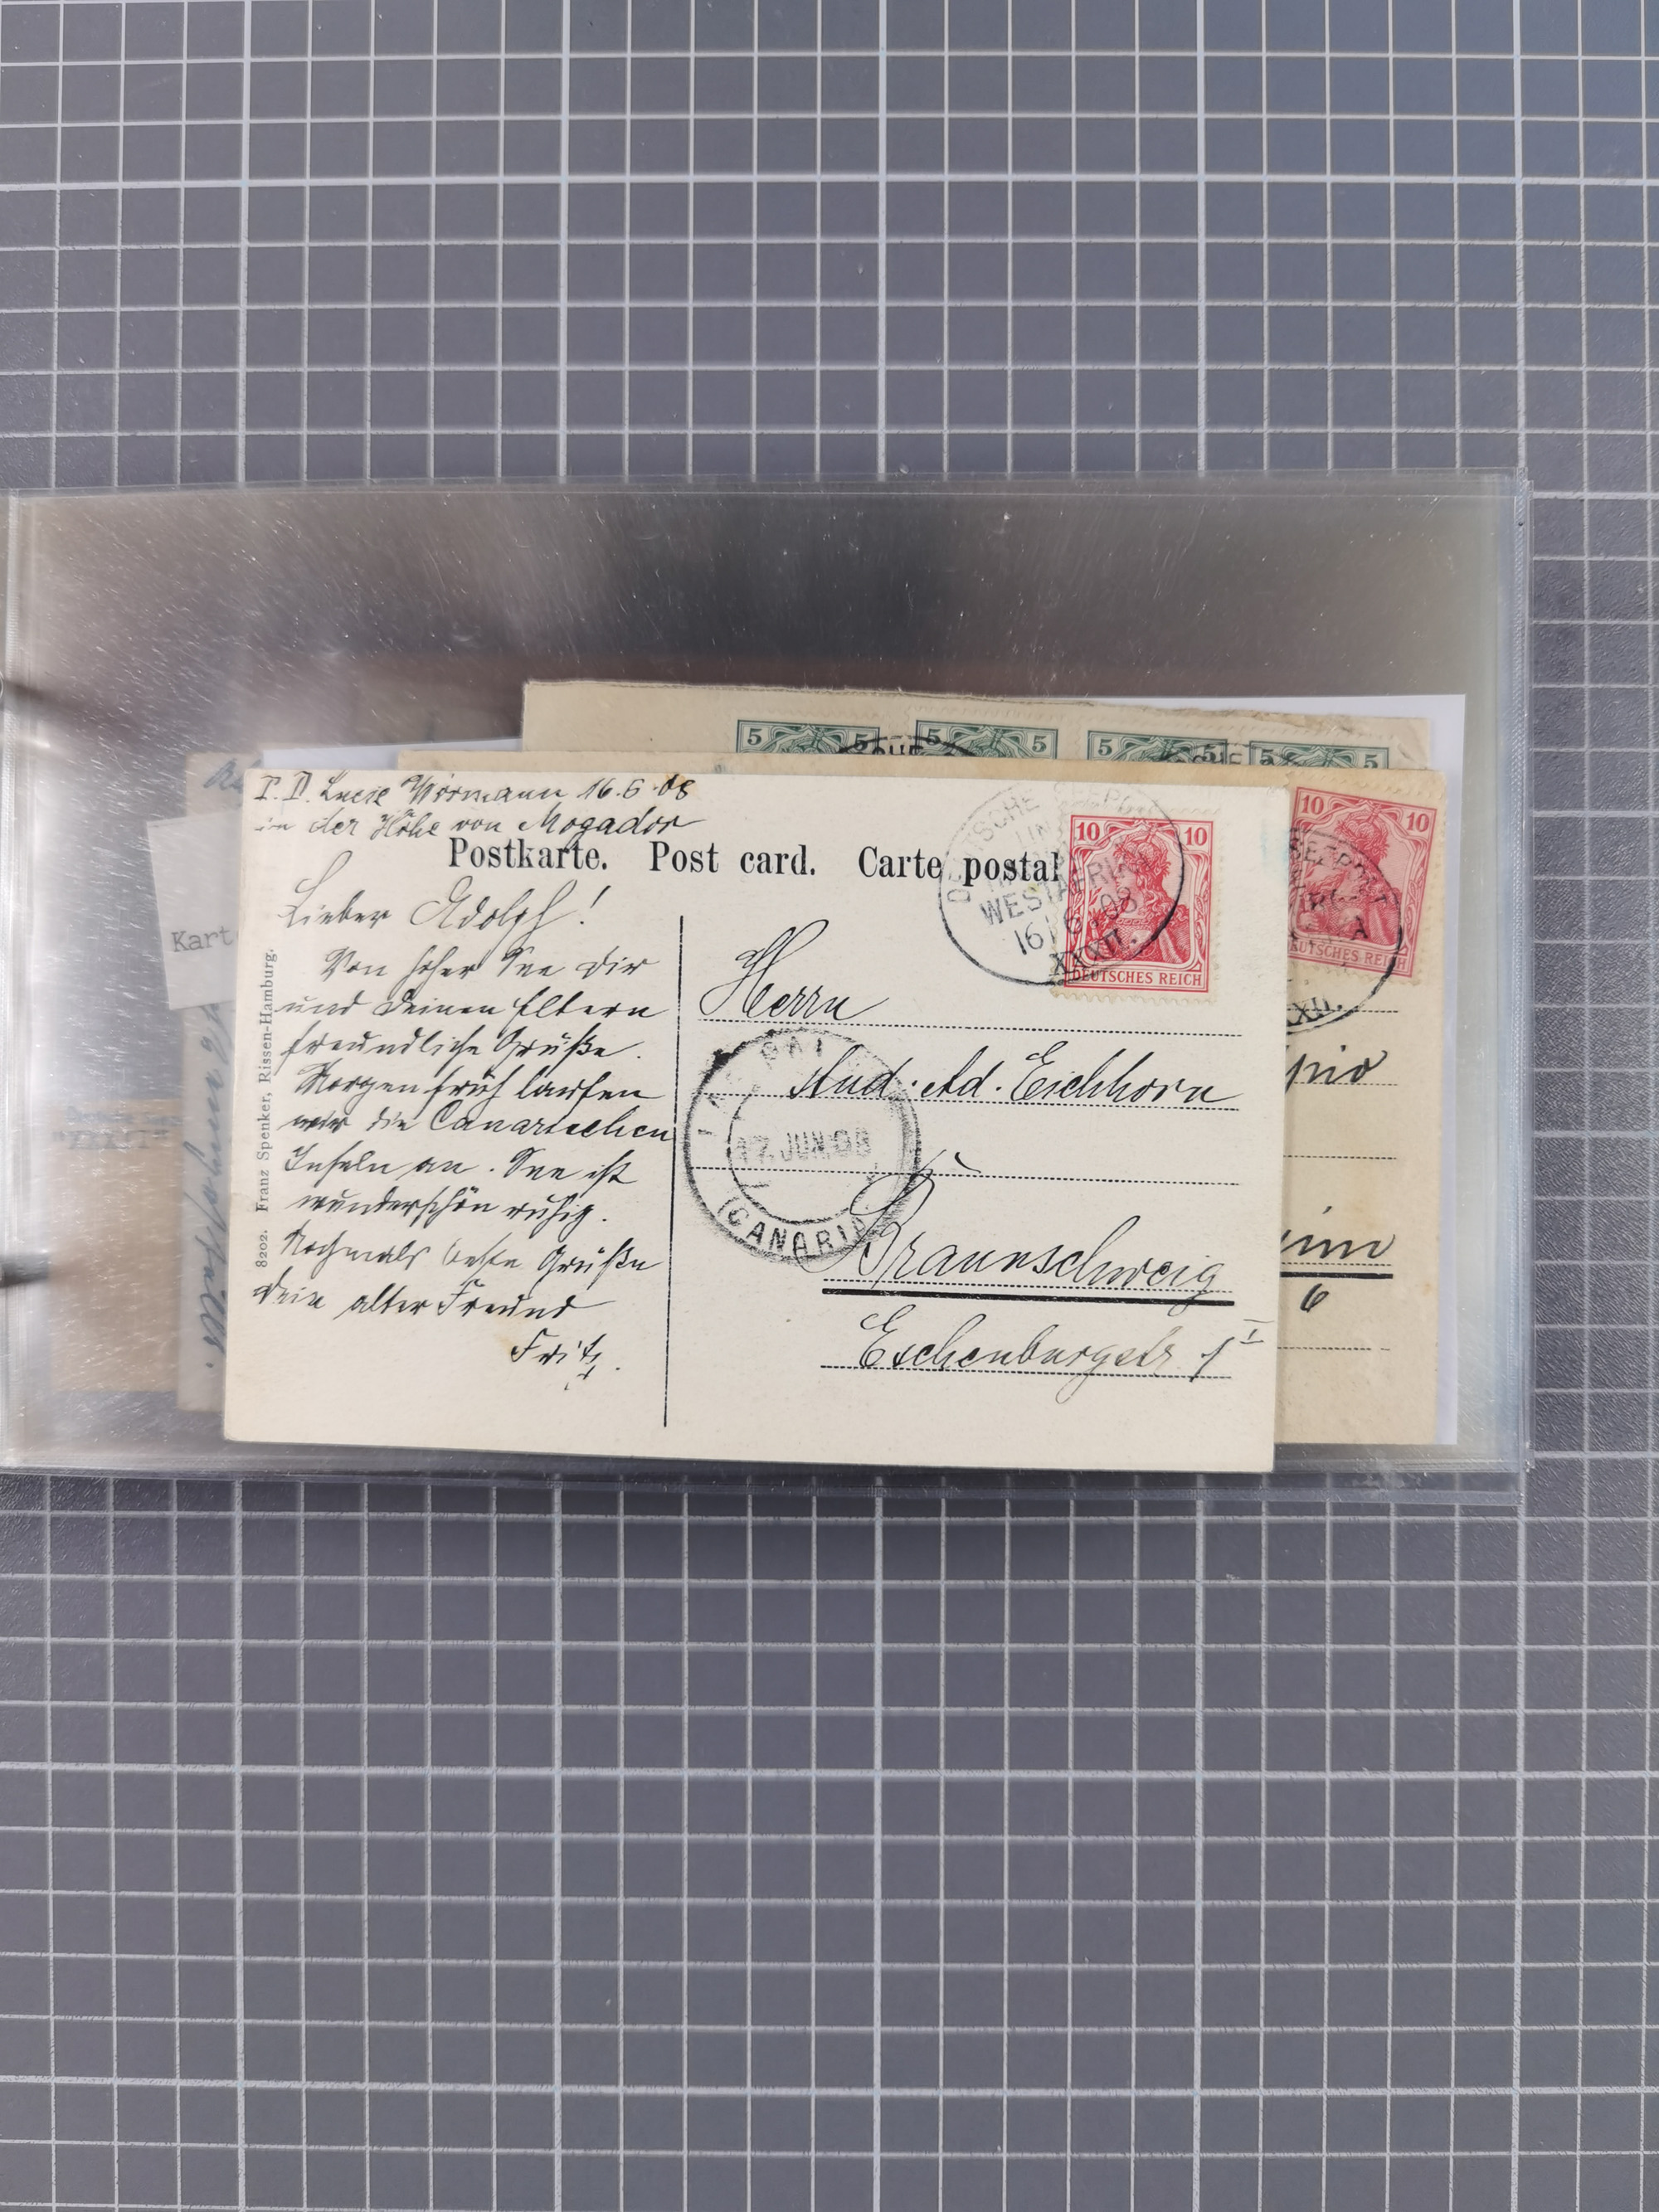 P. D. Lucie Wörmann 16.6.08
in der Höhe von Mogador
Postkarte. Post card. Carte postal
Lieber Adolph!
Von hoher See Dir
und Deinen Eltern
freundliche Grüße.
Morgen früh laufen
wir die Canarischen
Inseln an. See ist
wunderschön ruhig.
Nochmals beste Grüße
Dein alter Freund
Fritz.
8202. Franz Spenker, Rissen-Hamburg.
DEUTSCHE SEEPOST
LINIE
WESTAFRIKA
16 6 08
XXXII.
10 10
DEUTSCHES REICH
Herrn
stud. Ad. Eichhorn
17 JUN 08
(CANARIA
Braunschweig
Eschenburgstr. 1 I
5 5
5 5
5 5
5 5
10 10
SEEPOST
A
DEUTSCHES REICH
XXII.
6
Kart